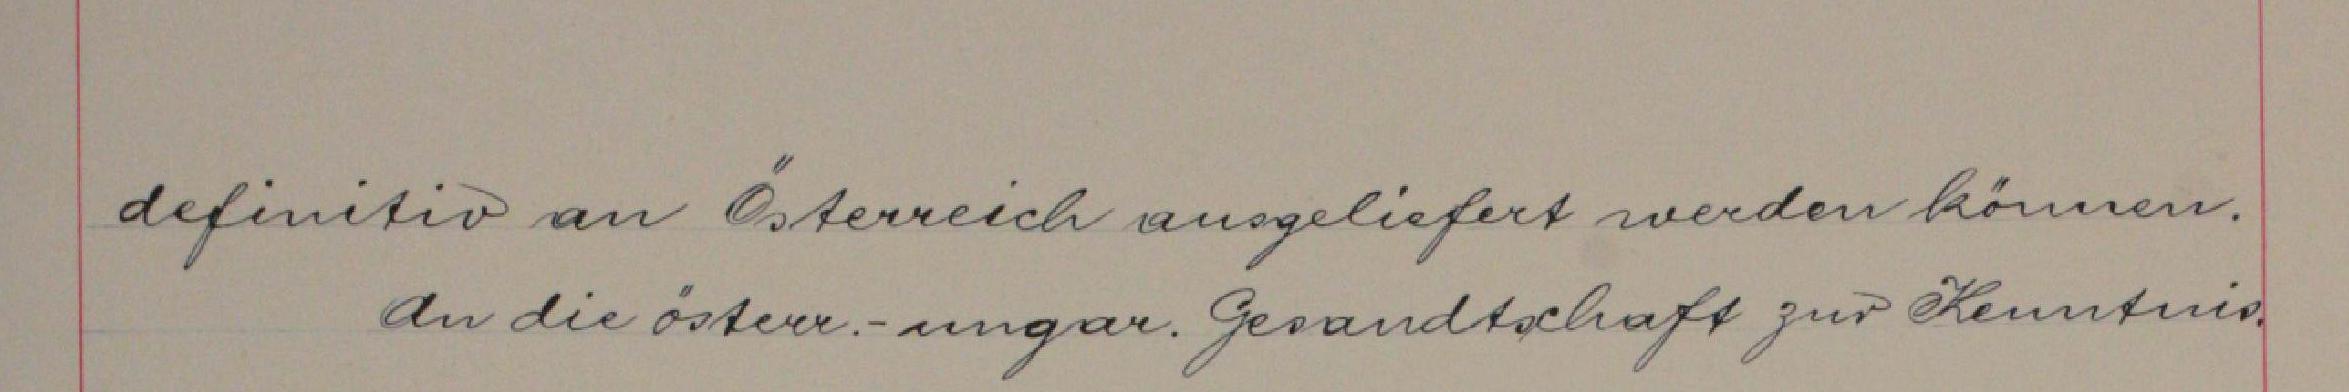 definitiv an Österreich ausgeliefert werden können.
An die österr.-ungar. Gesandtschaft zur Kenntnis.